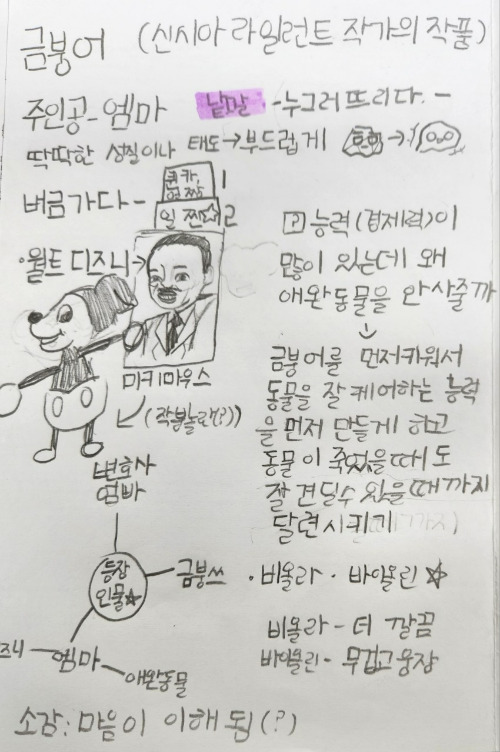 금붕어 (신시아 라일런트 작가의 작품)
주인공-엠마 낱말 -누그러뜨리다.-
딱딱한 성질이나 태도→부드럽게
버금가다-
퀸카, 1
일 짱 2
·월트 디즈니→
미키마우스
능력(경제력)이
많이 있는데 왜
애완동물을 안 사줄까
금붕어를 먼저키워서
동물을 잘 케어하는 능력
을 먼저 만들게 하고
동물이 죽었을때도
잘 견딜수 있을 때까지
달련시키기
변호사
엄빠
등장
인물
금붕쓰
엠마
애완동물
·비올라 ·바이올린
비올라-더 깔끔
바이올린-무겁고 웅장
소감: 마음이 이해됨(?)